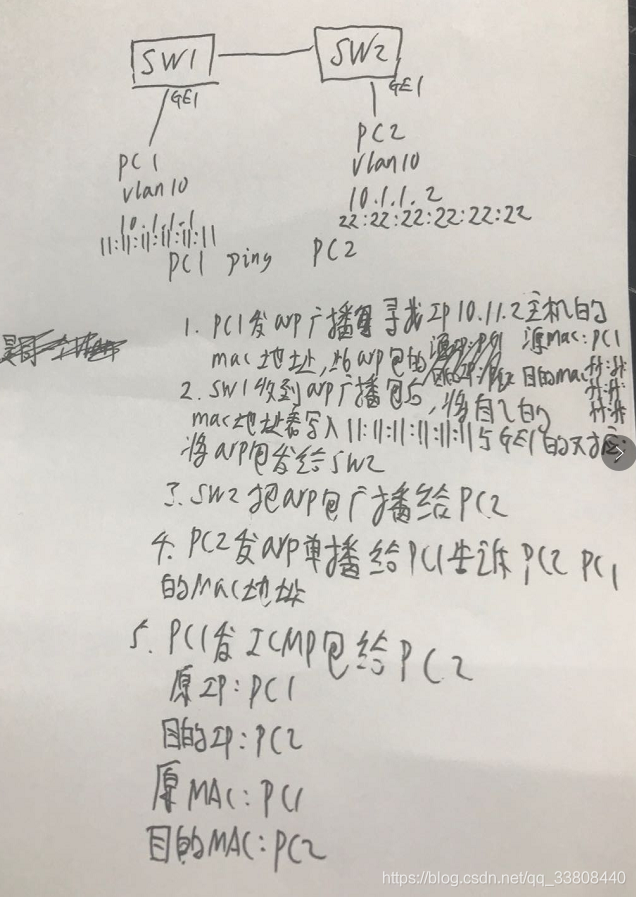 SW1
SW2
GE1
GE1
PC1
vlan10
10.1.1.1
11:11:11:11:11:11
PC2
vlan10
10.1.1.2
22:22:22:22:22:22
PC1 ping PC2
1. PC1发arp广播寻找IP10.11.2主机的
mac地址,此arp包的 源mac:PC1
目的mac ff:ff:
ff:ff:
ff:ff
2. SW1收到arp广播包后,将自己的
mac地址表写入11:11:11:11:11:11与GE1的对应
将arp包发给SW2
3. SW2把arp包广播给PC2
4. PC2发arp单播给PC1告诉PC2 PC1
的Mac地址
5. PC1发ICMP包给PC2
原IP:PC1
目的IP:PC2
原MAC:PC1
目的MAC:PC2
https://blog.csdn.net/qq_33808440